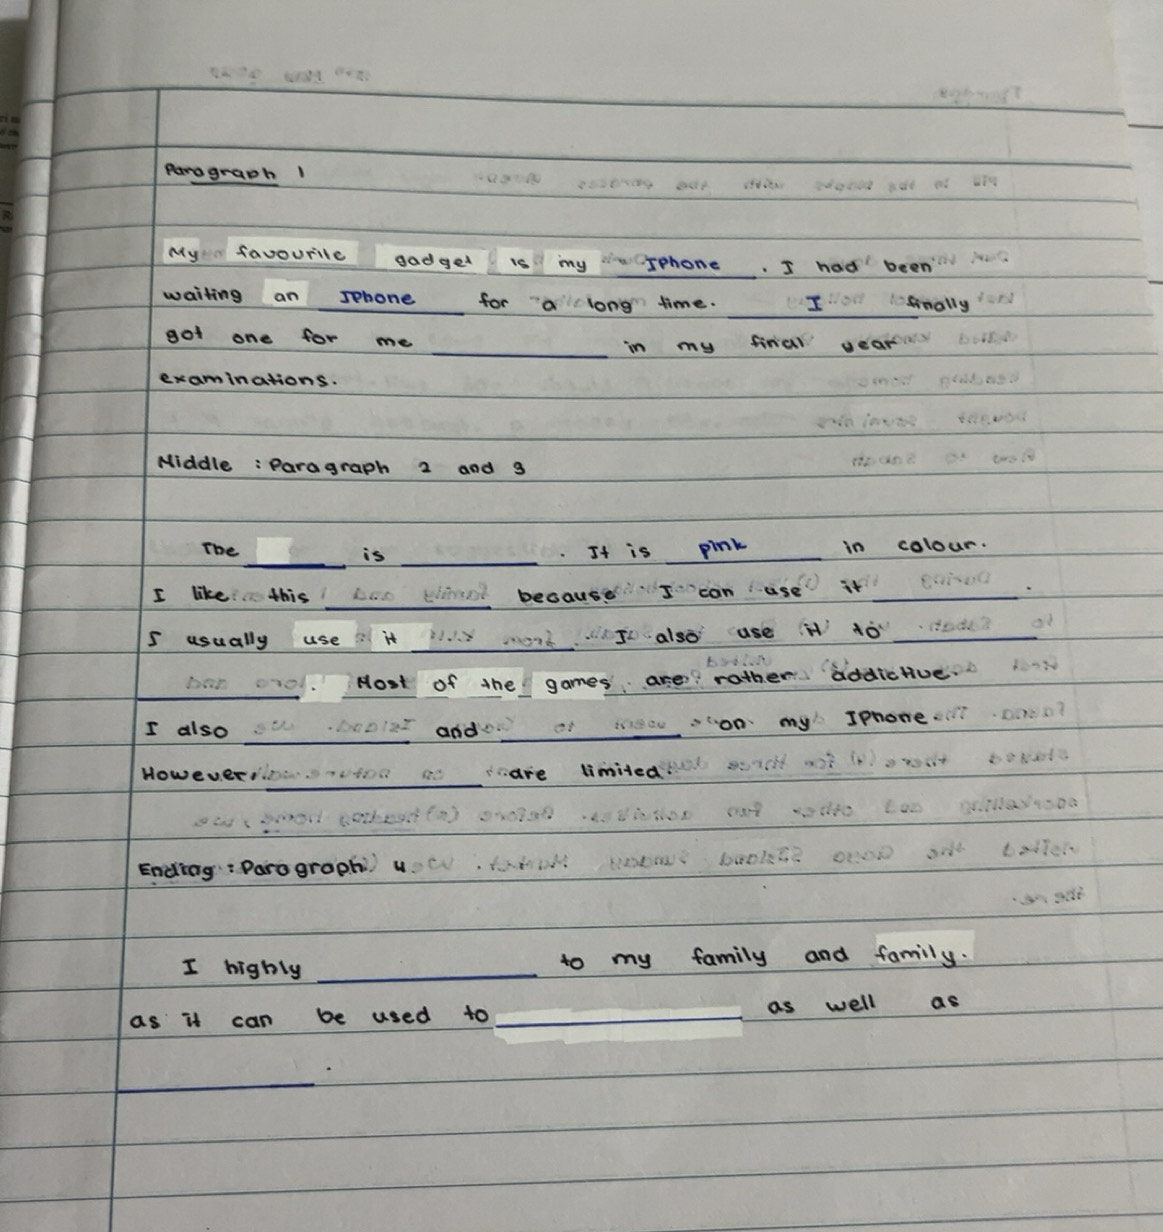 Paragraph 1
My favourite gadget is my Iphone . I had been
waiting an Iphone for a long time. I finally
got one for me ____ in my final year
examinations.
Middle : Paragraph 2 and 3
The ____ is ____ . It is pink in colour.
I like this ____ because I can use it ____ .
I usually use it ____ . I also use it to ____
____ . Most of the games are rather addictive.
I also ____ and ____ on my IPhone
However, ____ are limited.
Ending : Paragraph 4
I highly ____ to my family and family.
as it can be used to ____ as well as
____ .